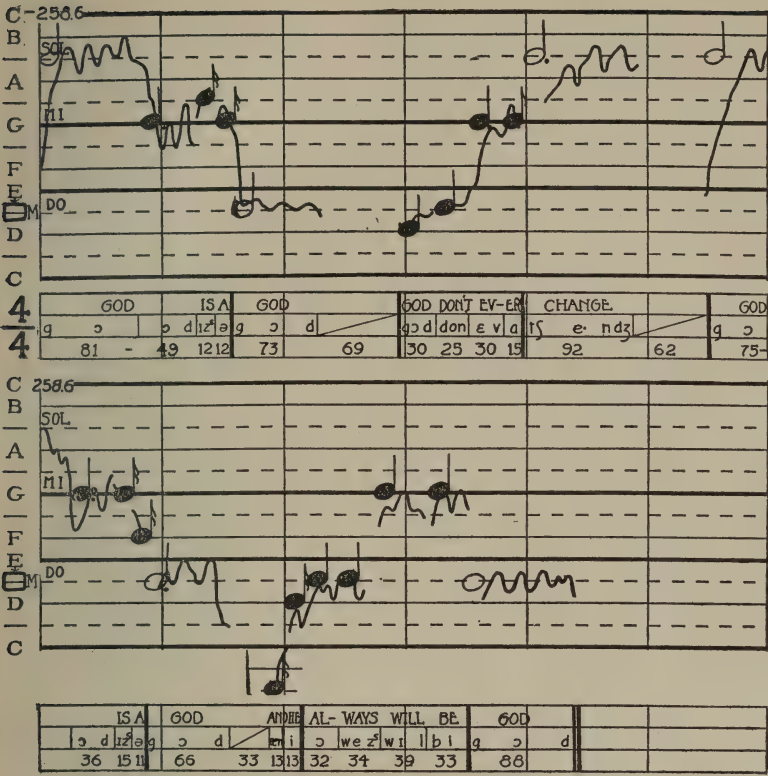 C-258.6
B
SOL
A
MI
G
F
E
M DO
D
C
4/4
GOD IS A GOD GOD DON'T EV-ER CHANGE GOD
g ɔ ɔ d ɪzˢ ə g ɔ d gɔd don ɛ v ɑ tʃ e· ndʒ g ɔ
81 - 49 12 12 73 69 30 25 30 15 92 62 75-
C 258.6
B
SOL
A
MI
G
F
E
M DO
D
C
IS A GOD AND HE AL- WAYS WILL BE GOD
ɔ d ɪzˢ ə g ɔ d i ɔ we zˢ wɪ l bi g ɔ d
36 15 11 66 33 13 13 32 34 39 33 88